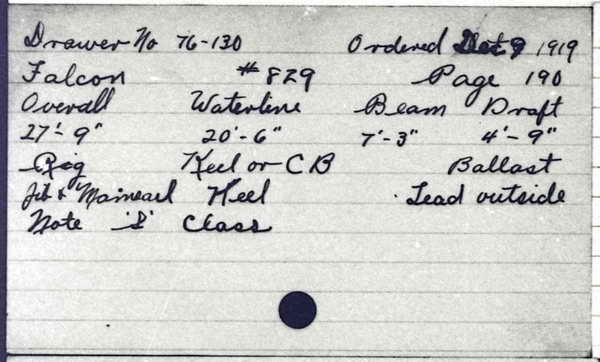 Drawer No 76-130 Ordered Dec 9 1919
Falcon #829 Page 190
Overall Waterline Beam Draft
27'-9" 20'-6" 7'-3" 4'-9"
Rig Keel or CB Ballast
Jib & Mainsail Keel Lead outside
Note 'S' Class